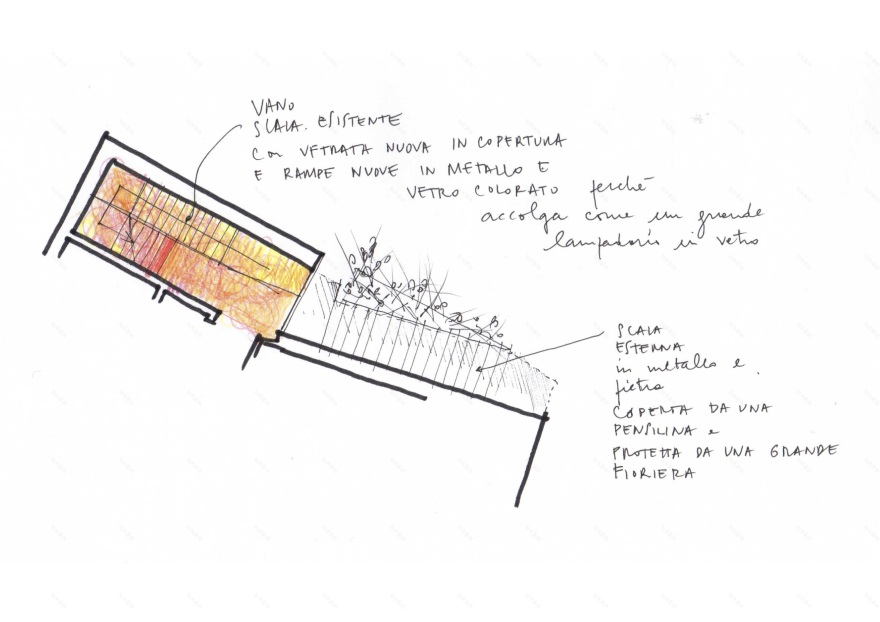 VANO
SCALA. ESISTENTE
con VETRATA NUOVA IN COPERTURA
E RAMPE NUOVE IN METALLO E
VETRO COLORATO perché
accolga come un grande
lampadario in vetro
SCALA
ESTERNA
in metallo e
pietra
COPERTA DA UNA
PENSILINA e
PROTETTA DA UNA GRANDE
FIORIERA